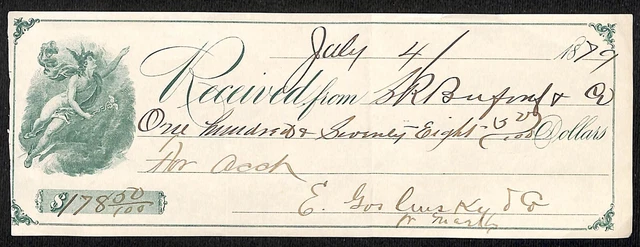 July 4 1879
Received from S R Buford & Co
One hundred & Seventy Eight 50/100 Dollars
For acch
$178 50/100
E. Goslinsky & Co
pr